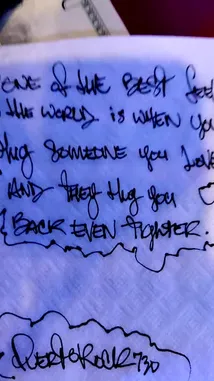 ONE of the BEST fee
the WORLD is WHEN you
Hug SOMEONE you Love
AND they Hug you
BACK EVEN tigHter.
PuertoRock730